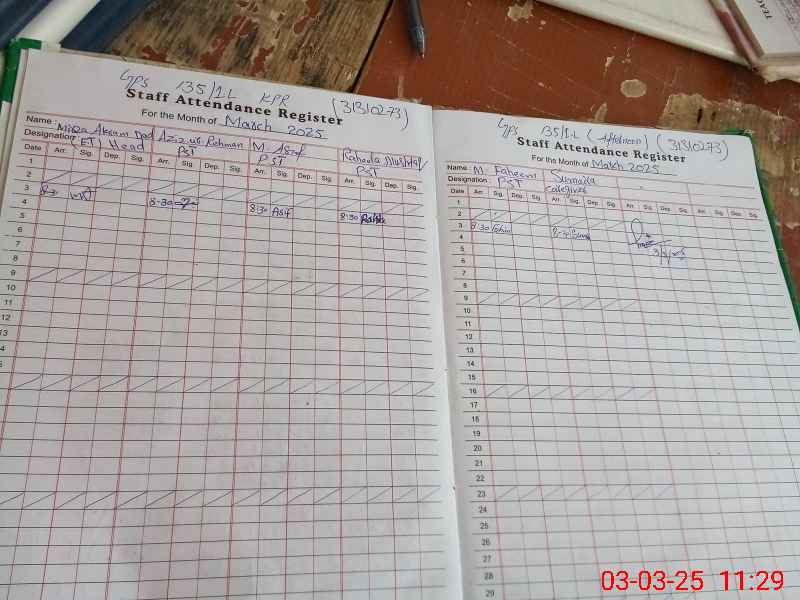 GPS 135/1L KPR (31310273)
Staff Attendance Register
For the Month of March 2025
Name : Mirza Akram Dad Aziz ur Rehman M. Asif Raheela Mushtaq
Designation (EST) Head PST PST PST
Date Arr. Sig. Dep. Sig. Arr. Sig. Dep. Sig. Arr. Sig. Dep. Sig. Arr. Sig. Dep. Sig.
1
2
3 8-30 8:30 Asif 8:30
4
5
6
7
8
9
10
11
12
13
GPS 135/1L (Afternoon) (31310273)
Staff Attendance Register
For the Month of March 2025
Name : M. Faheem Sumaila
Designation PST Caregiver
Date Arr. Sig. Dep. Sig. Arr. Sig. Dep. Sig. Arr. Sig. Dep. Sig. Arr. Sig. Dep. Sig.
1
2
3 8:30
4
5
6
7
8
9
10
11
12
13
14
15
16
17
18
19
20
21
22
23
24
25
26
27
28
29
03-03-25 11:29